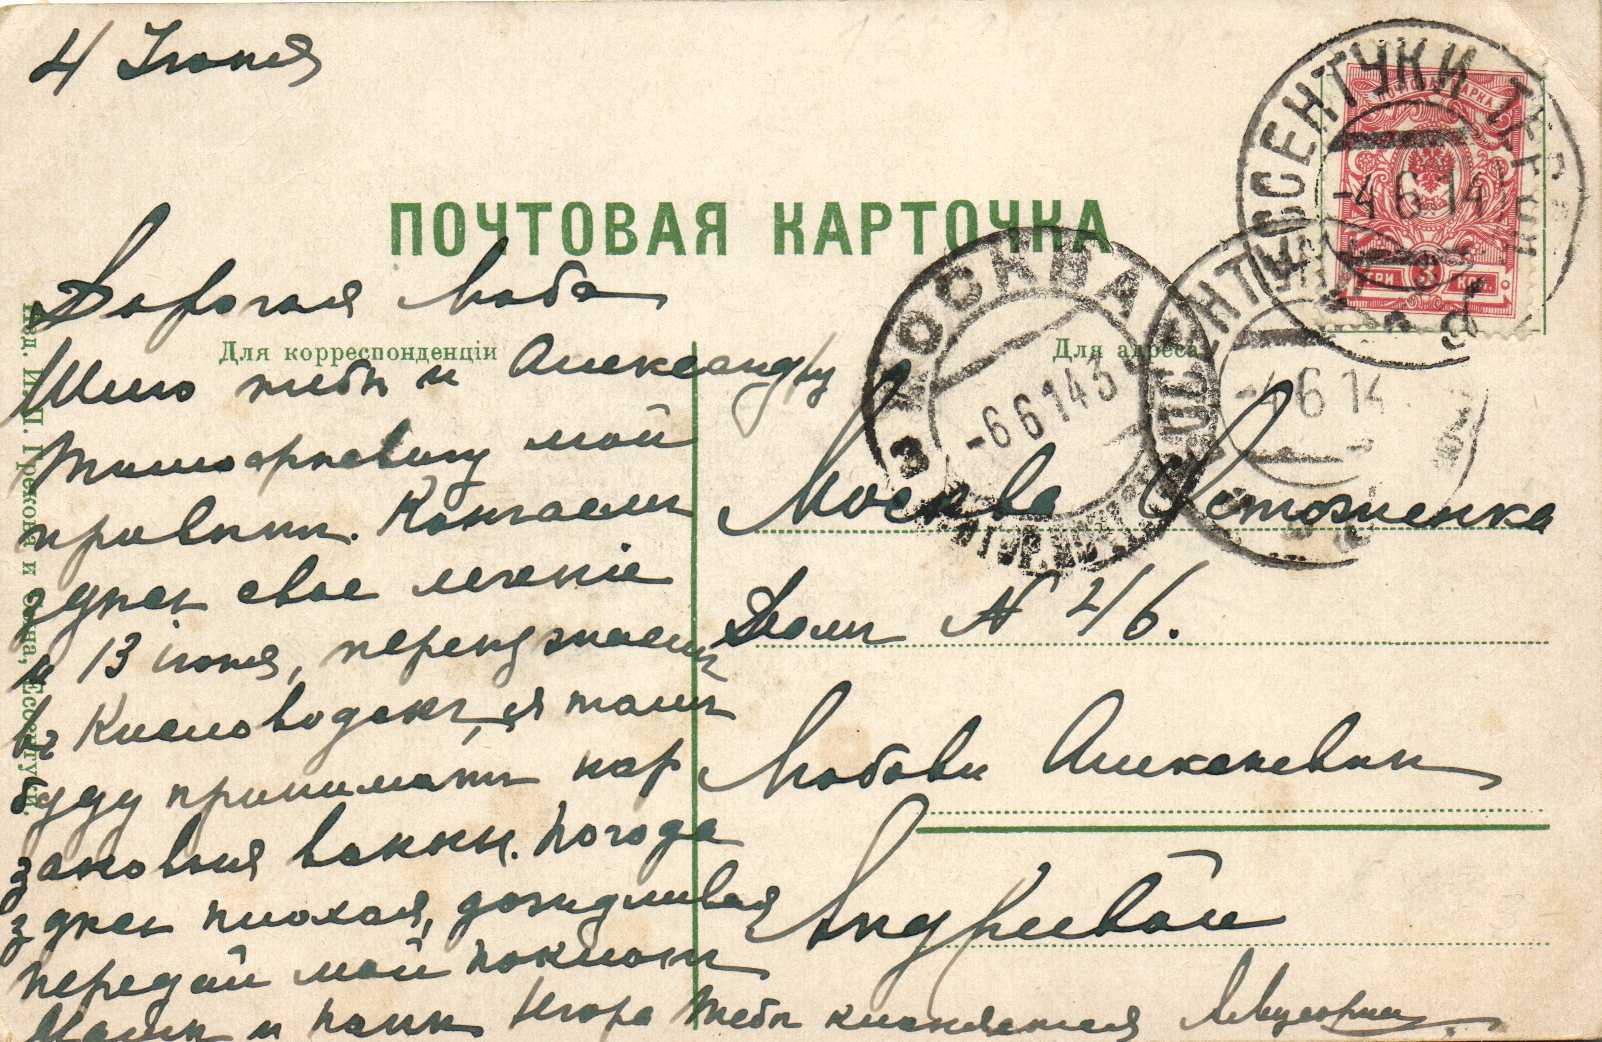 4 Июня
ПОЧТОВАЯ КАРТОЧКА
Дорогая Люба
Для корреспонденціи
Для адреса
Шлю тебѣ и Александру
Тимофѣевичу мой
привѣтъ. Кончаемъ
здѣсь свое леченіе
и 13 іюня, переѣзжаемъ
въ Кисловодскъ, я тамъ
буду принимать нар
занов
ванны. Погода
здѣсь плохая, дождливая
передай мой поклонъ
Мамѣ и папѣ Игорь тебѣ кланяется
Москва Остоженка
Домъ № 4/6.
Любови Алексѣевнѣ
Андреевой
Изд. И. П. Грекова и Сына, Ессентуки.
ЕССЕНТУКИ ТЕРСК.
-4 6 14
МОСКВА
-6 6 14 3
3
ЕССЕНТУКИ
-4 6 14
ПОЧТОВАЯ МАРКА
ТРИ 3 КОП.